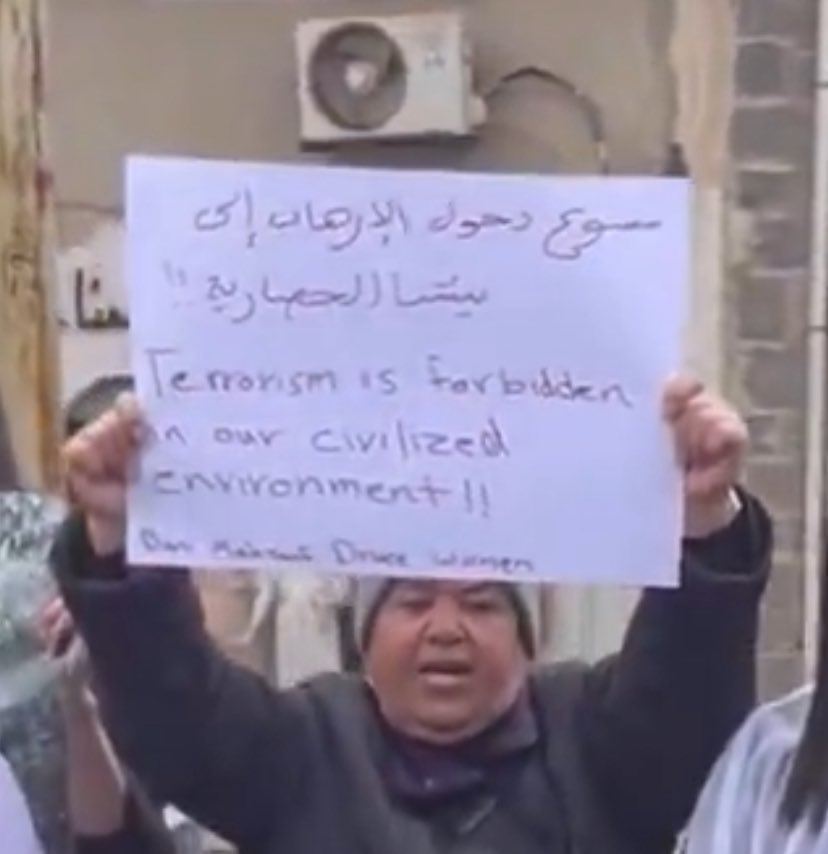 ممنوع دخول الإرهاب إلى
بيئتنا الحضارية !!
Terrorism is forbidden
in our civilized
environment !!
Druze Women